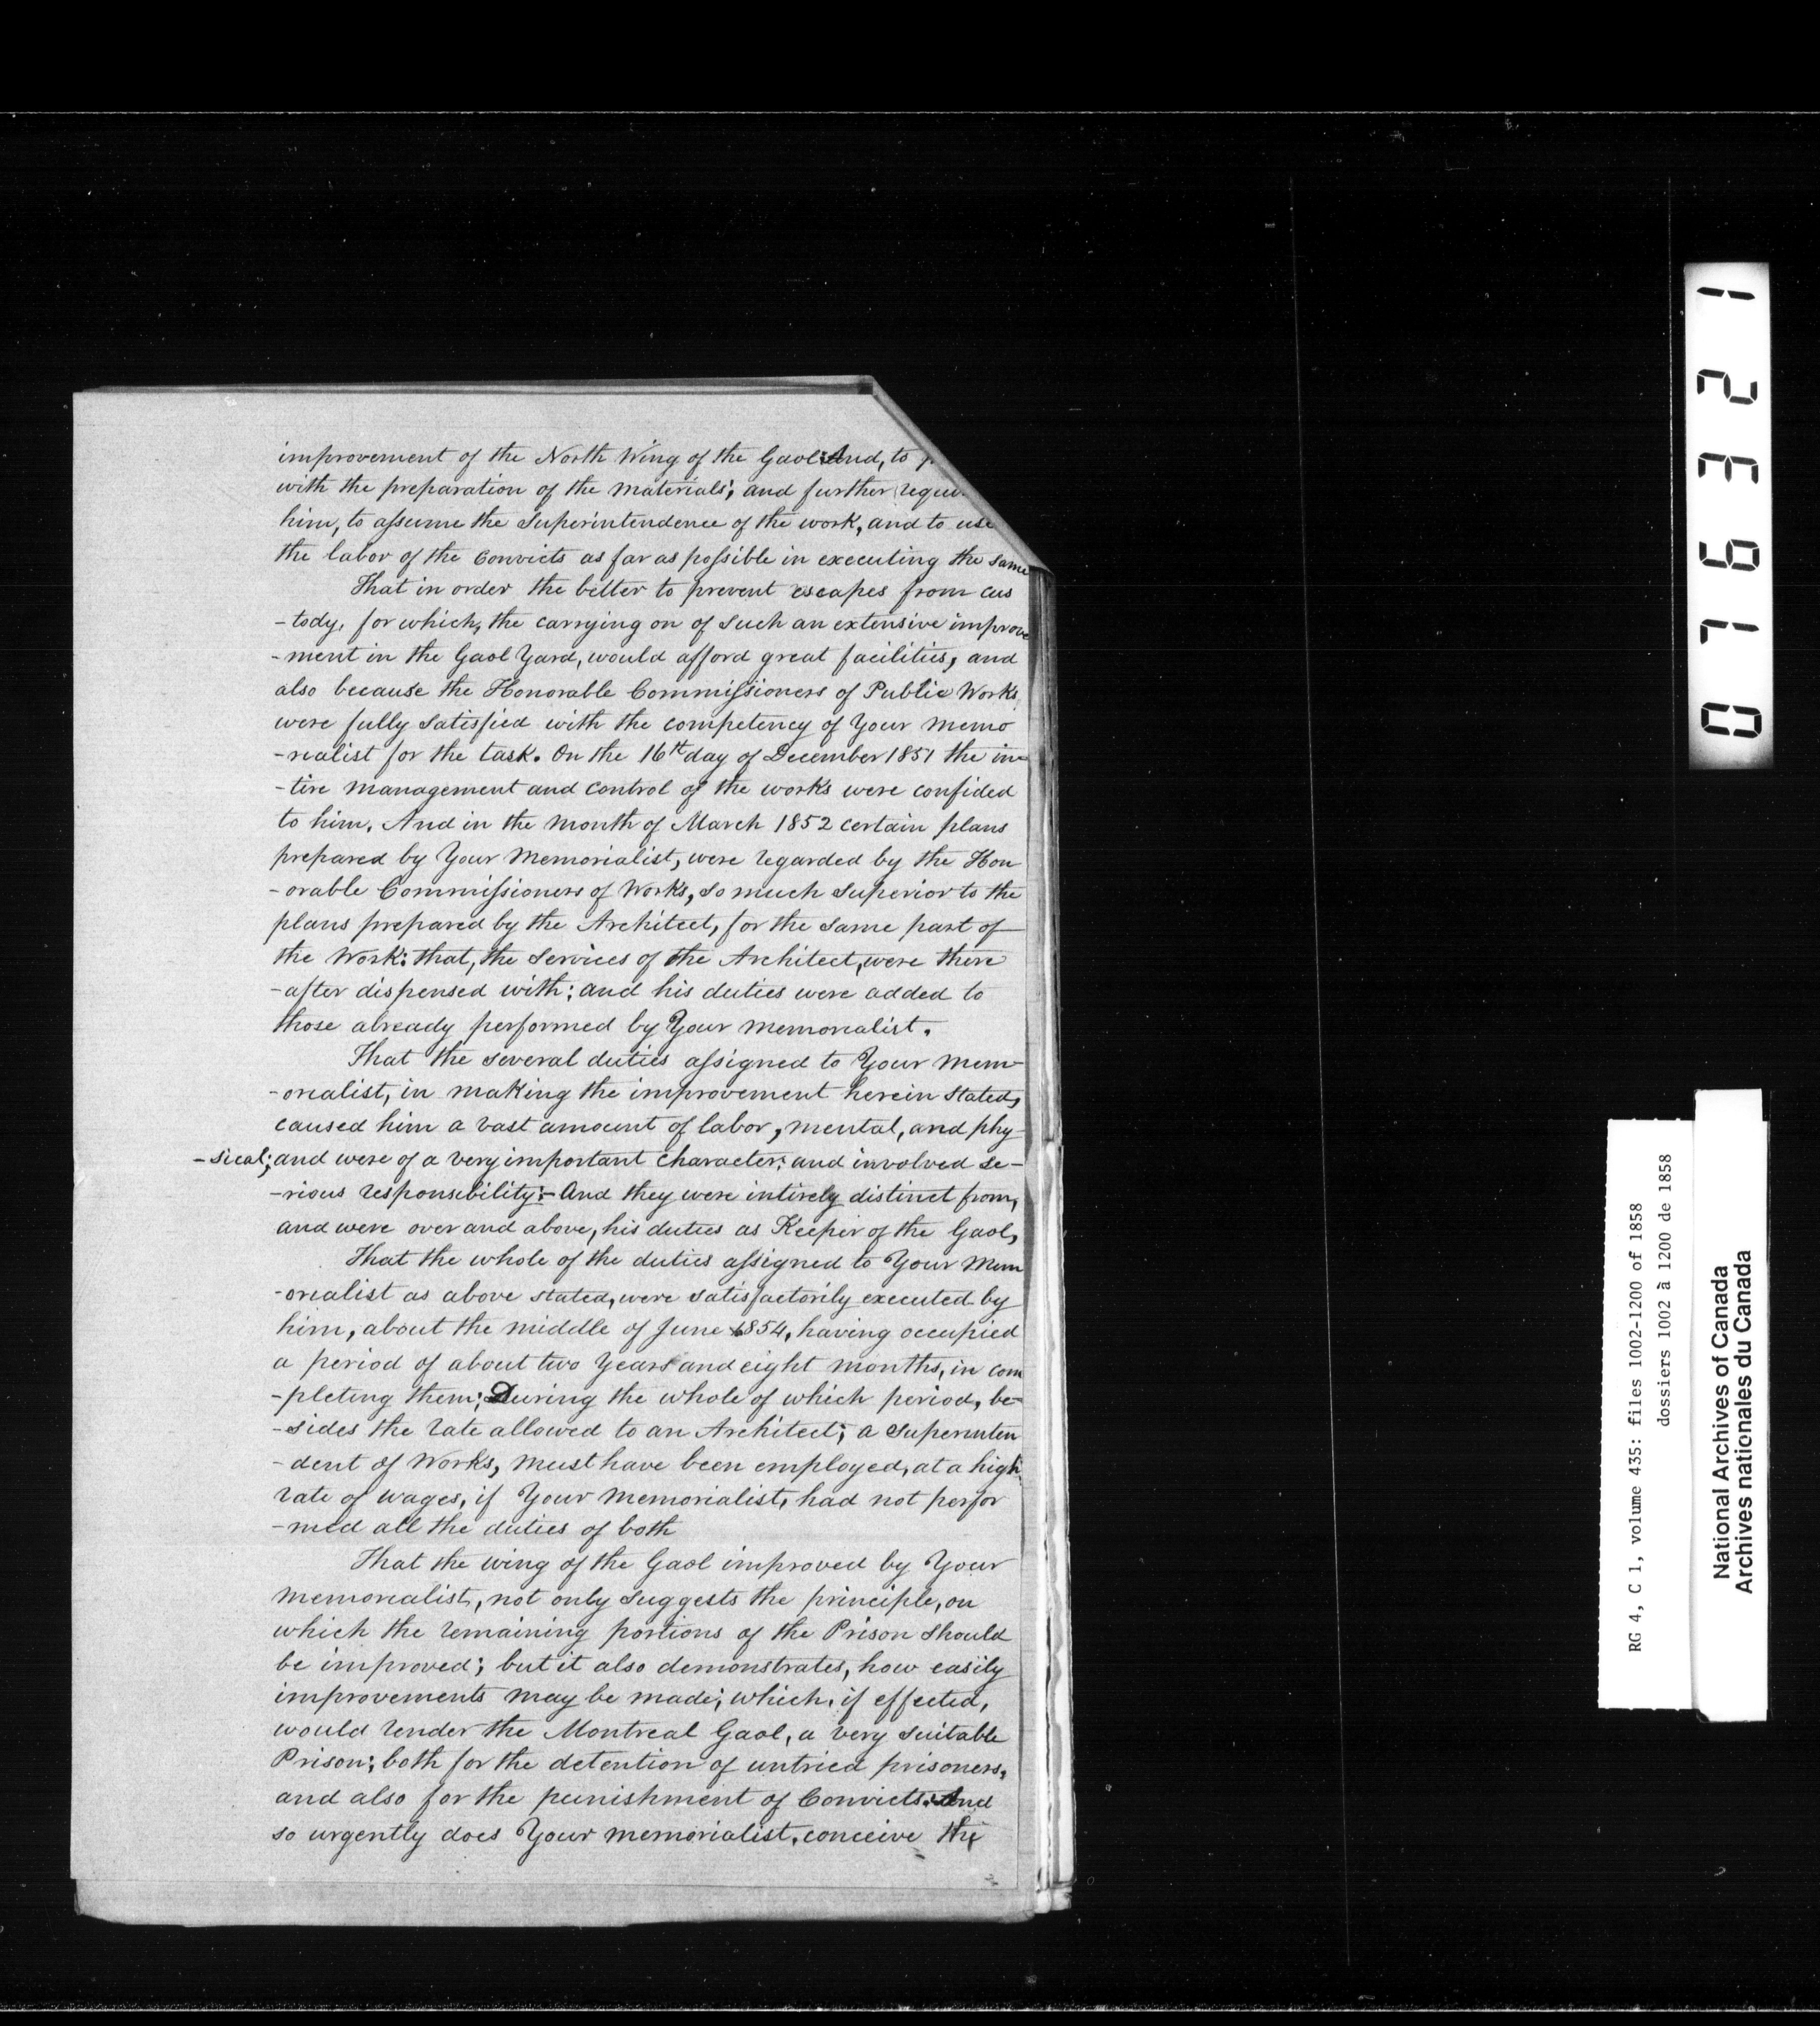 improvement of the North Wing of the Gaol: And, to
with the preparation of the materials; and further
him, to assume the Superintendence of the work, and to use
the labor of the Convicts as far as possible in executing the same
That in order the better to prevent escapes from cus
-tody, for which, the carrying on of such an extensive improve
-ment in the Gaol Yard, would afford great facilities, and
also because the Honorable Commissioners of Public Works
were fully satisfied with the competency of Your Memo
-rialist for the task. On the 16th day of December 1851 the in-
-tire management and control of the works were confided
to him. And in the month of March 1852 certain plans
prepared by Your Memorialist, were regarded by the Hon
-orable Commissioners of Works, so much superior to the
plans prepared by the Architect, for the same part of
the Work: that, the services of the Architect, were there
-after dispensed with; and his duties were added to
those already performed by Your memorialist.
That the several duties assigned to Your Mem-
-orialist, in making the improvement herein stated,
caused him a vast amount of labor, mental, and phy-
-sical; and were of a very important character; and involved se-
-rious responsibility:- And they were intirely distinct from,
and were over and above, his duties as Keeper of the Gaol,
That the whole of the duties assigned to Your Mem
-orialist as above stated, were satisfactorily executed by
him, about the middle of June 1854, having occupied
a period of about two Years and eight months, in com
-pleting them; During the whole of which period, be-
-sides the rate allowed to an Architect; a Superinten
-dent of Works, must have been employed, at a high
rate of wages, if Your Memorialist, had not perfor
-med all the duties of both
That the wing of the Gaol improved by Your
memorialist, not only suggests the principle, on
which the remaining portions of the Prison should
be improved; but it also demonstrates, how easily
improvements may be made; which, if effected,
would render the Montreal Gaol, a very suitable
Prison; both for the detention of untried prisoners,
and also for the punishment of Convicts: And
so urgently does Your memorialist, conceive the
076321
RG 4, C 1, volume 435: files 1002-1200 of 1858
dossiers 1002 à 1200 de 1858
National Archives of Canada
Archives nationales du Canada